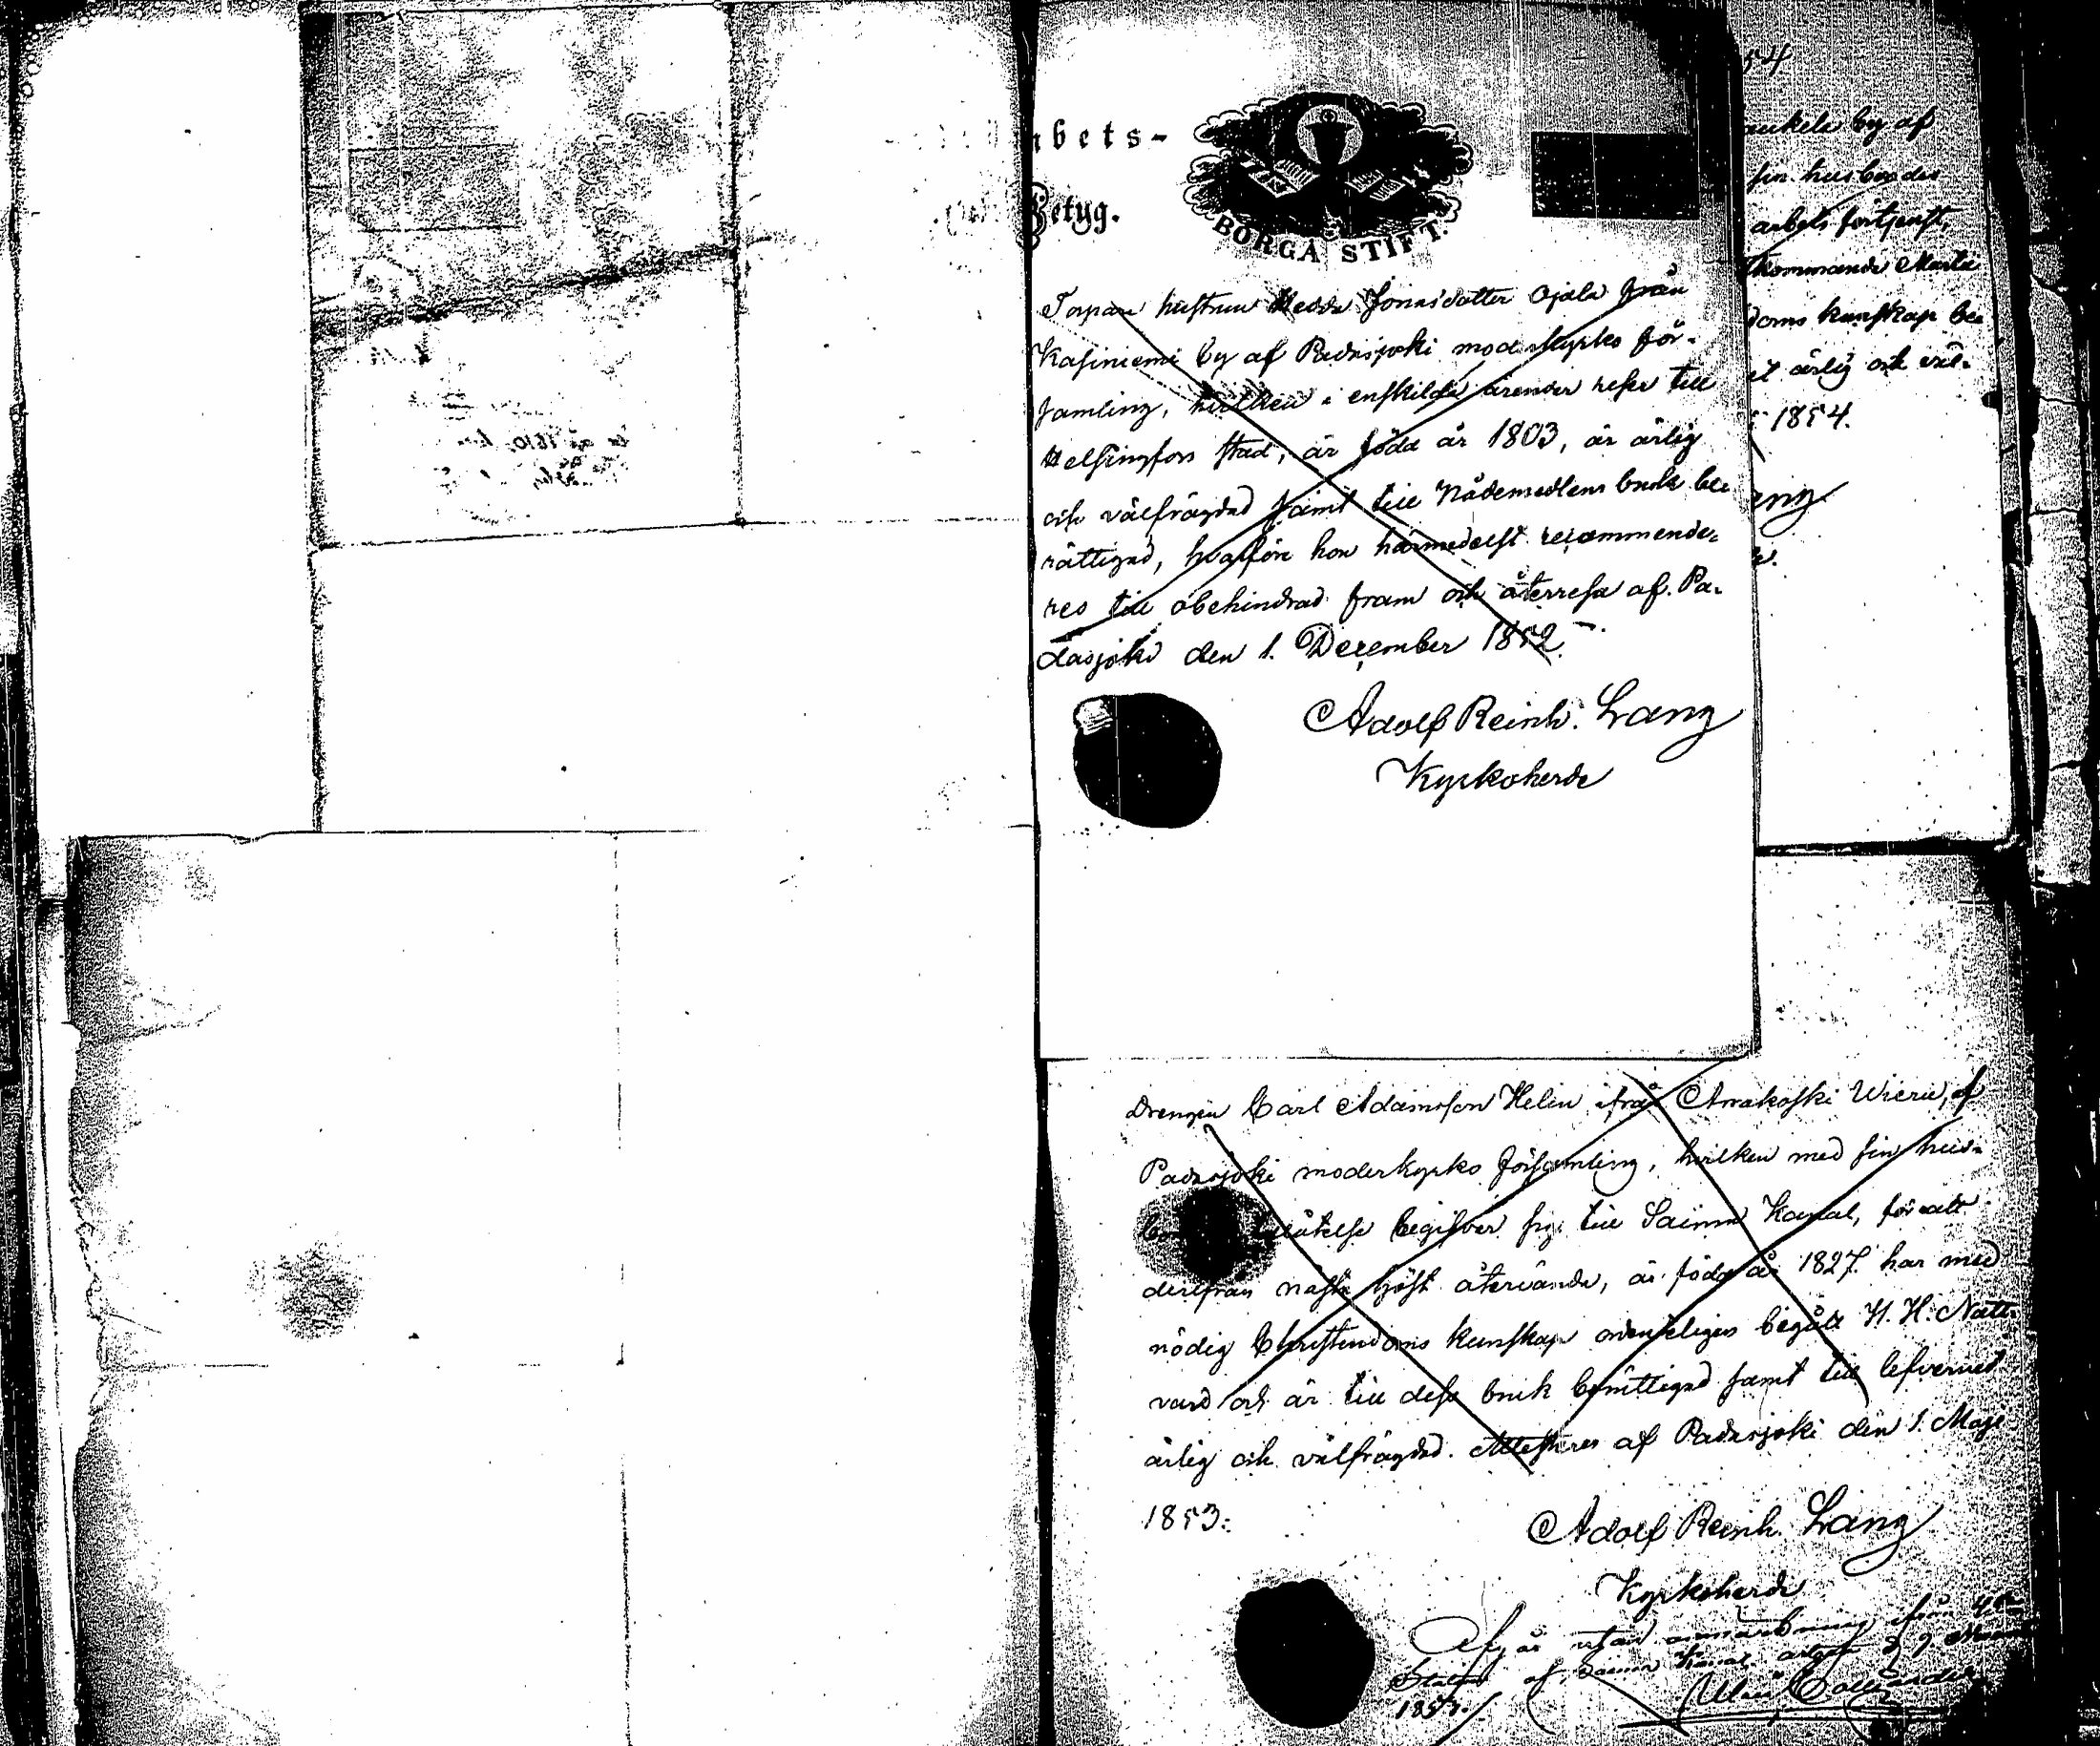 bets-
Betyg.
BORGÅ STIFT.
Torpare hustrun Hedda Jonasdotter Ojala från
Kasiniemi by af Padasjoki moderkyrko för-
samling, hvilken i enskilda ärender reser till
Helsingfors stad, är född år 1803, är ärlig
och välfrägdad samt till Nådemedlens bruk be-
rättigad, hvarföre hon härmedelst recommende-
res till obehindrad fram och återresa af. Pa-
dasjoki den 1. December 1852.
Adolf Reinh. Lang
Kyrkoherde
54
by af
sin husbondes
arbets förtjenst,
kommande Martii
doms kunskap be-
et ärlig och väl-
1854.
ang
Drengen Carl Adamsson Helin ifrån Arrakoski Wieru, af
Padasjoki moderkyrko församling, hvilken med sin hus-
låtelse begifver sig till Saima Kanal, för att
derifrån nästa höst återvända, är född år 1827. har med
nödig Christendoms kunskap ordenteligen begått H. H. Natt-
vard och är till dess bruk berättigad samt till lefvernet
ärlig och välfrägdad. Attesteras af Padasjoki den 1. Maji
1853.
Adolf Reinh. Lang
Kyrkoherde
utan anmärkning ifrån
Station af Saima Kanal
1853.